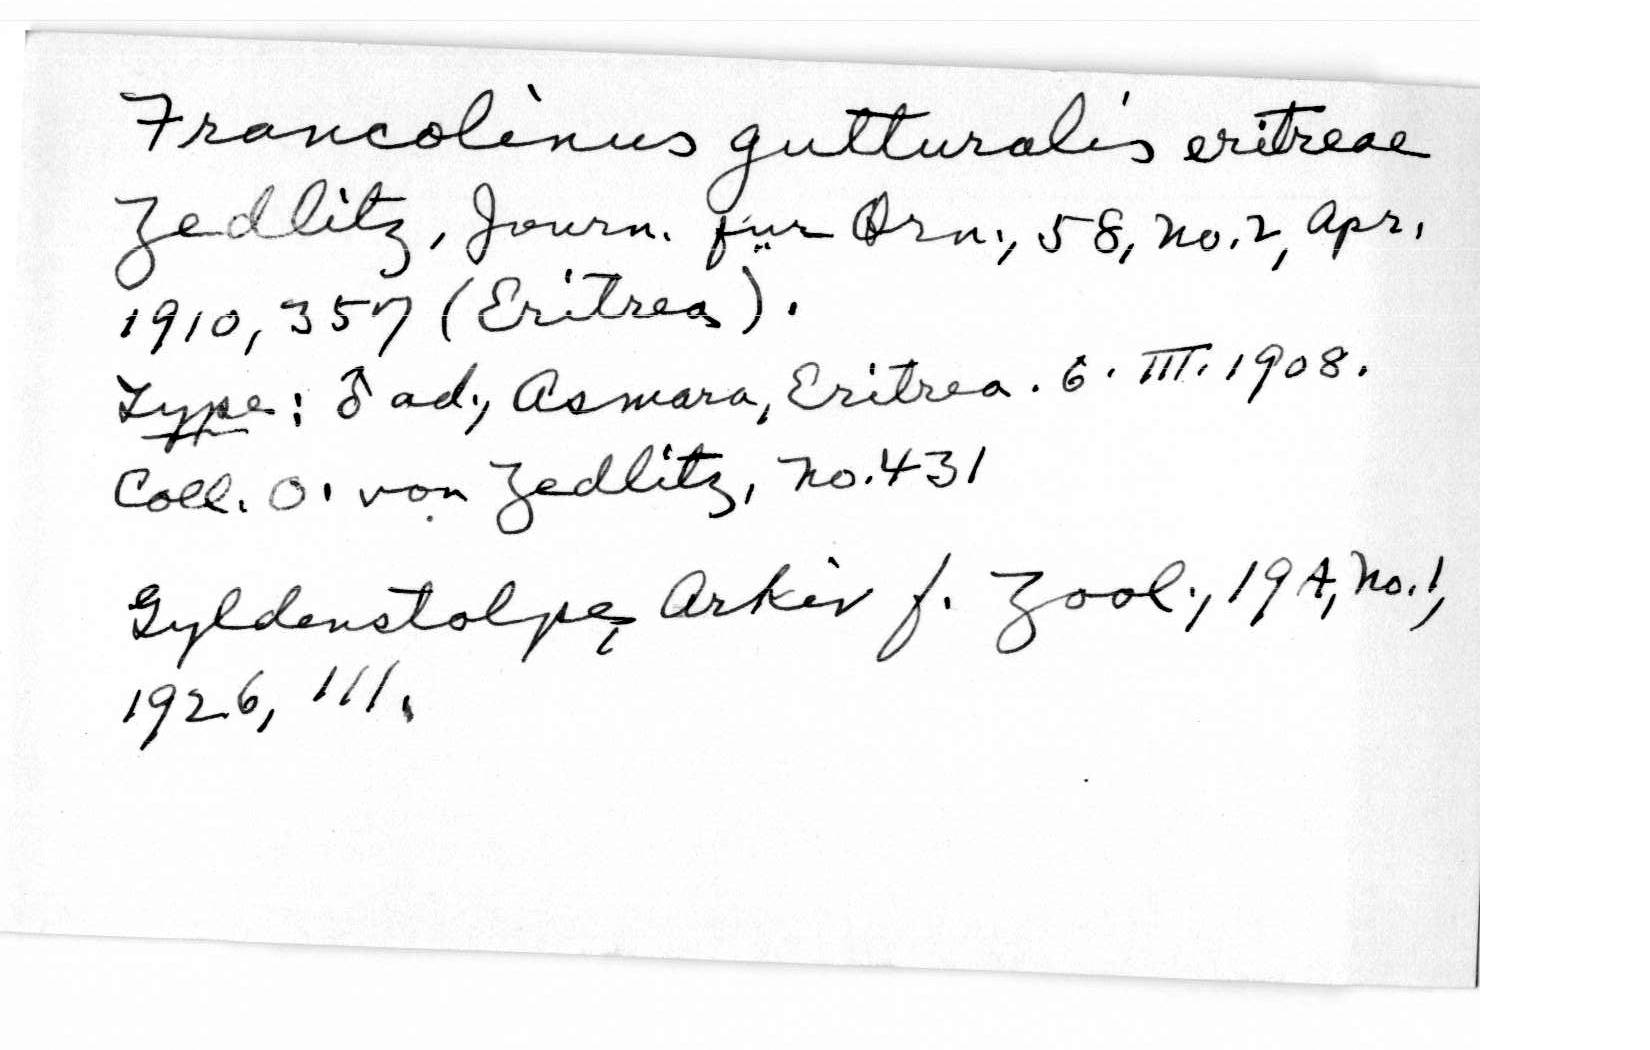 Francolinus gutturalis eritreae
Zedlitz, Journ. für Orn., 58, no. 2, Apr.
1910, 357 (Eritrea).
Type: ♂ ad., Asmara, Eritrea. 6. III. 1908.
Coll. O. von Zedlitz, no. 431
Gyldenstolpe, Arkiv f. Zool., 19A, no. 1,
1926, 111.